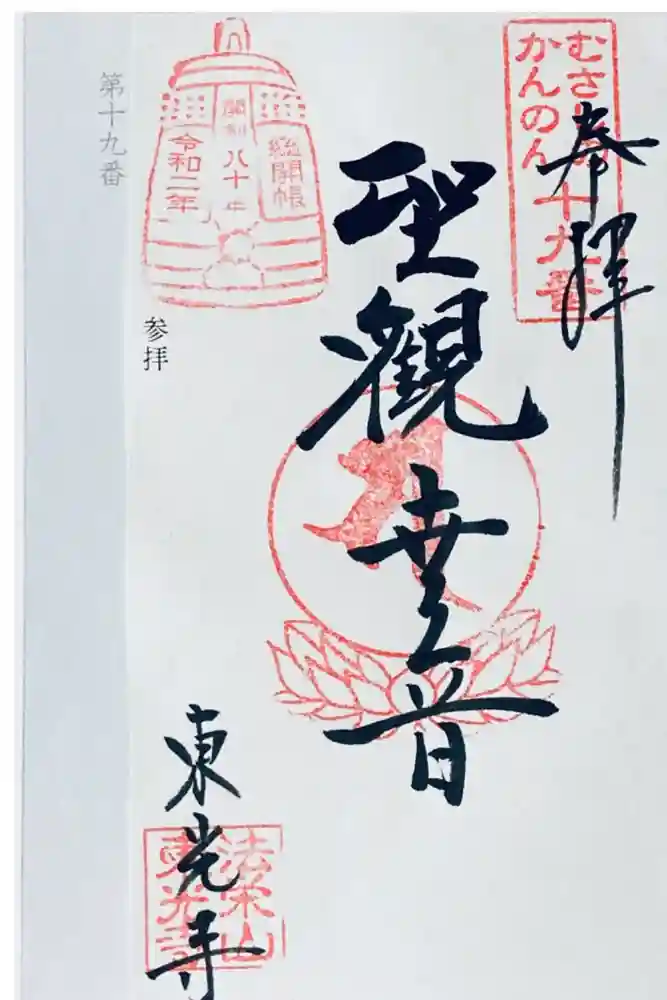 むさしの
かんのん
十九番
奉拝
聖観世音
總開帳
開創八十年
令和二年
参拝
第十九番
東光寺
法栄山
東光寺